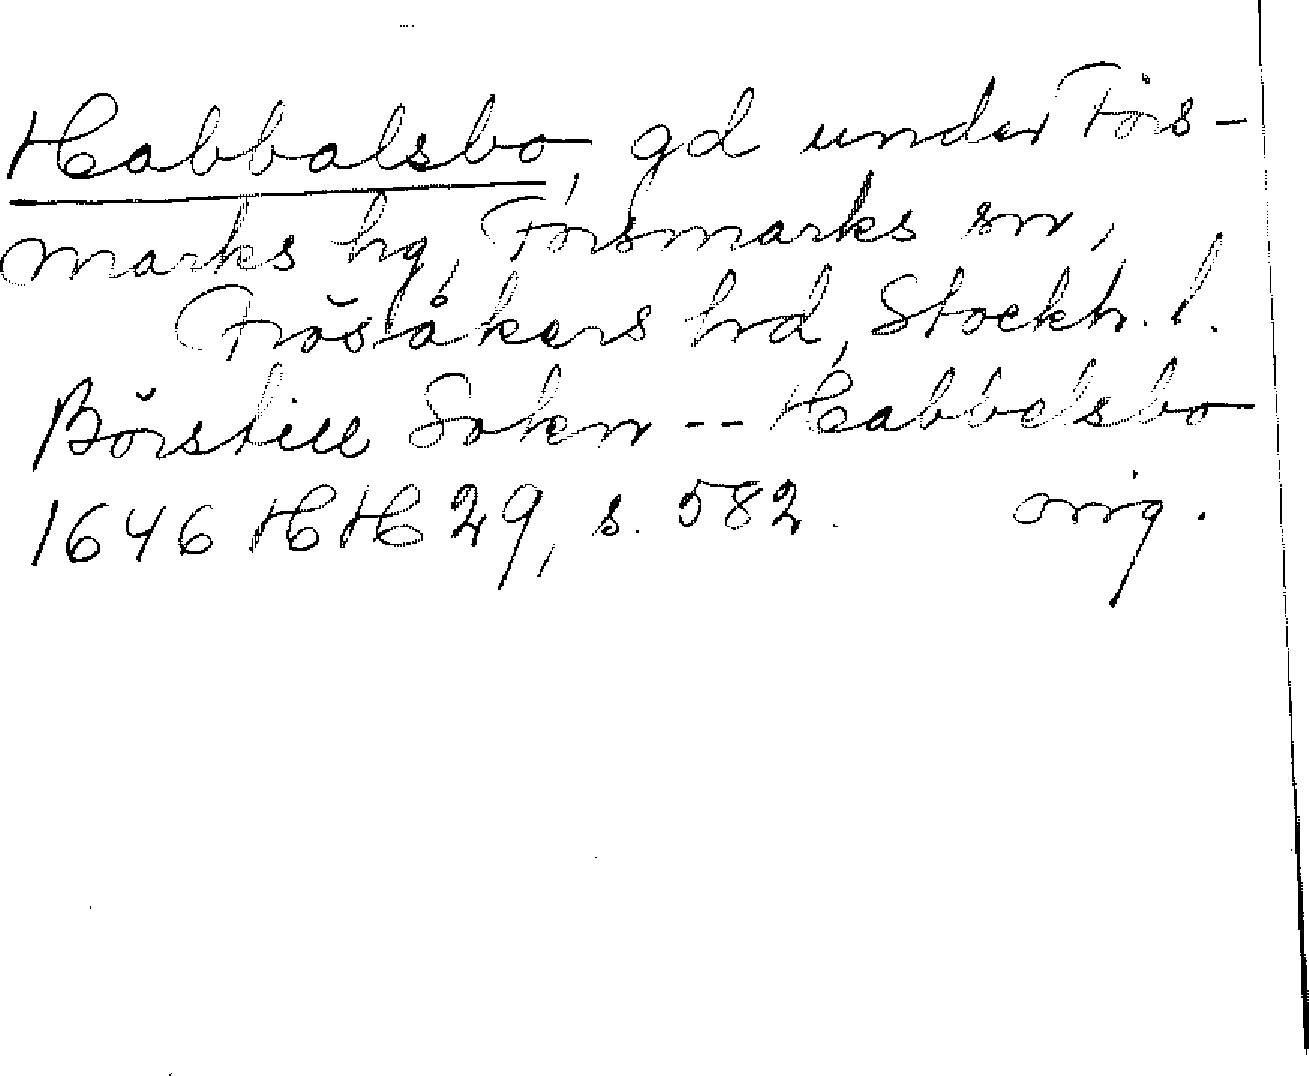 Habbalsbo, gd under Fors-
marks hg, Forsmarks sn,
Frösåkers hrd, Stockh. l.
Börstill Sokn -- Habbelsbo
1646 HH 29, s. 582. orig.